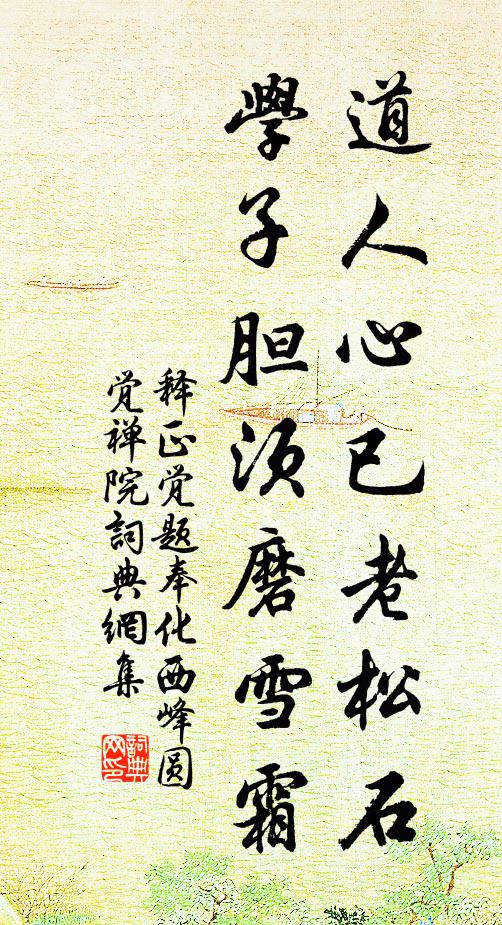 道人心已老松石
學子胆须磨雪霜
释正觉题奉化西峰圆
觉禅院詞典網集
詞典
网印